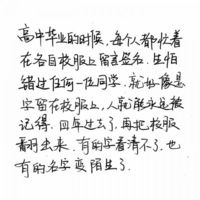 高中毕业的时候，每个人都忙着
在各自校服上留言签名，生怕
错过任何一位同学，就好像是
字留在校服上，人就能永远被
记得。四年过去了，再把校服
翻出来，有的字看清不了，也
有的名字变陌生了。